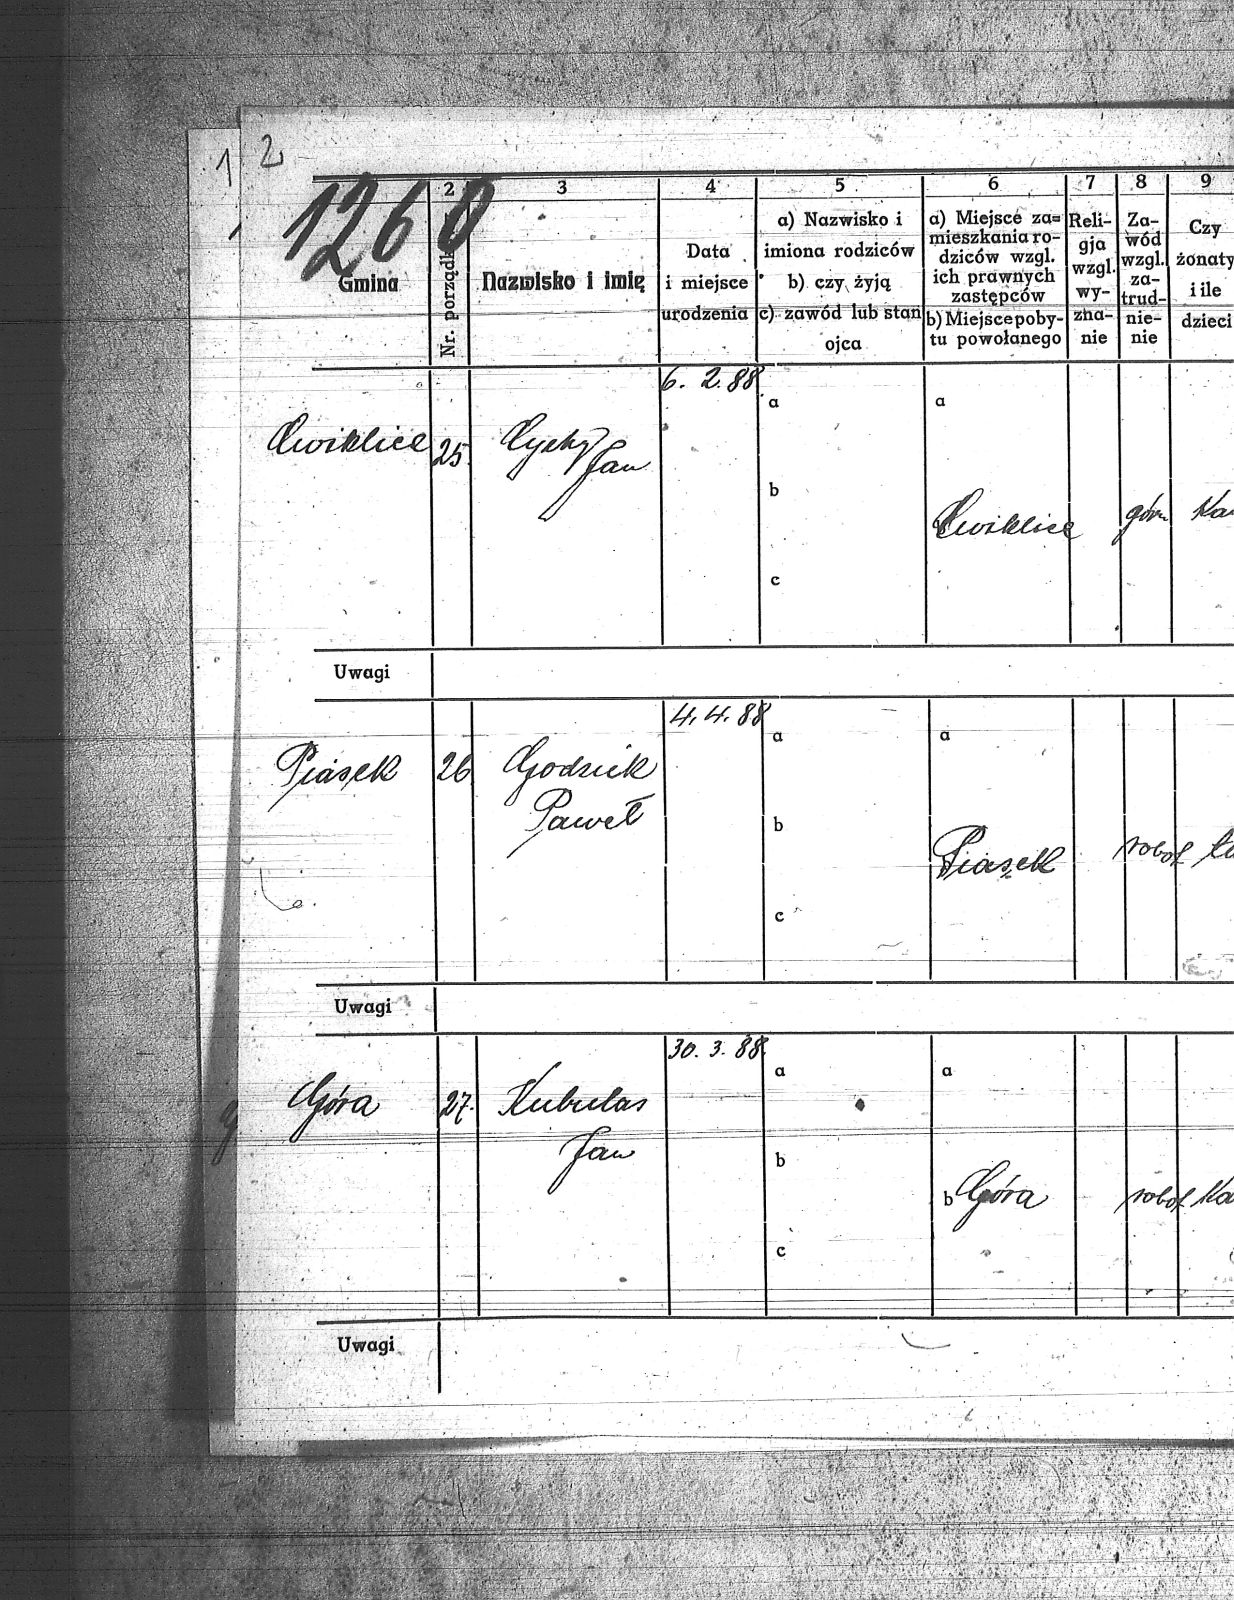 1 2
1260
2 3 4 5 6 7 8 9
Gmina
Nr. porządk
Nazwisko i imię
Data
i miejsce
urodzenia
a) Nazwisko i
imiona rodziców
b) czy żyją
c) zawód lub stan
ojca
a) Miejsce za=
mieszkania ro-
dziców wzgl.
ich prawnych
zastępców
b) Miejsce poby-
tu powołanego
Reli-
gja
wzgl.
wy-
zna-
nie
Za-
wód
wzgl.
za-
trud-
nie-
nie
Czy
żonaty
i ile
dzieci
6. 2. 88
a a
Cwiklice 25
Jan
b
Cwiklice górn
c
Uwagi
4. 4. 88
a a
Piasek 26 Godziek
Paweł
b
Piasek robot
c
Uwagi
30. 3. 88.
a a
Góra 27. Kubulas
Jan
b
b Góra robot
c
Uwagi